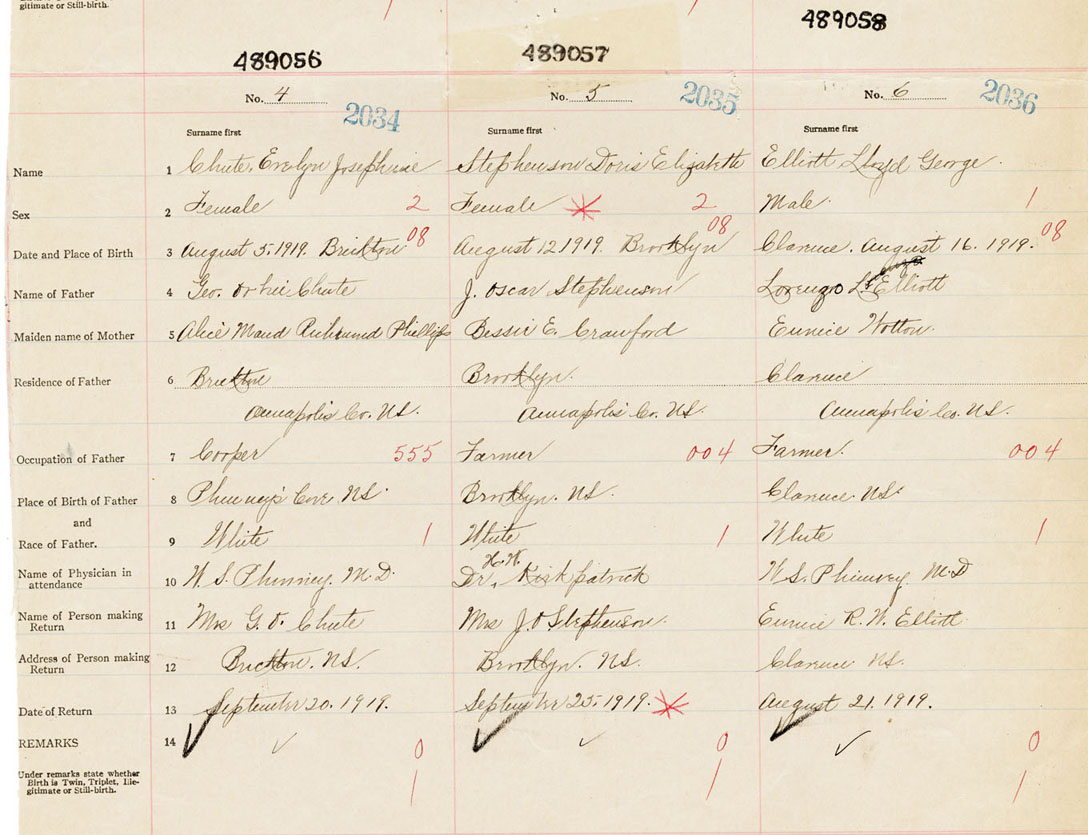 gitimate or Still-birth.
489056 489057 489058
No. 4 2034 No. 5 2035 No. 6 2036
Surname first Surname first Surname first
Name 1 Chute, Evelyn Josephine Stephenson Doris Elizabeth Elliott Lloyd George.
Sex 2 Female 2 Female 2 Male. 1
Date and Place of Birth 3 August 5. 1919. Brickton 08 August 12. 1919. Brooklyn 08 Clarence. August 16. 1919. 08
Name of Father 4 Geo. Chute J. Oscar Stephenson Lorenzo Elliott
Maiden name of Mother 5 Alice Maud Richmond Phillips Bessie E. Crawford Eunice Wotton.
Residence of Father 6 Brickton Brooklyn. Clarence
Annapolis Co. N.S. Annapolis Co. N.S. Annapolis Co. N.S.
Occupation of Father 7 Cooper 555 Farmer 004 Farmer. 004
Place of Birth of Father 8 Phinney's Cove N.S. Brooklyn. N.S. Clarence N.S.
and
Race of Father. 9 White 1 White 1 White 1
H.W.
Name of Physician in attendance 10 W. S. Phinney. M.D. Dr. Kirkpatrick W. S. Phinney. M.D
Name of Person making Return 11 Mrs G. O. Chute Mrs J. O Stephenson. Eunice R. W. Elliott
Address of Person making Return 12 Brickton. N.S. Brooklyn. N.S. Clarence N.S.
Date of Return 13 September 20. 1919. September 25. 1919. August 21. 1919.
REMARKS 14 0 0 0
Under remarks state whether Birth is Twin, Triplet, Ille-gitimate or Still-birth. 1 1 1